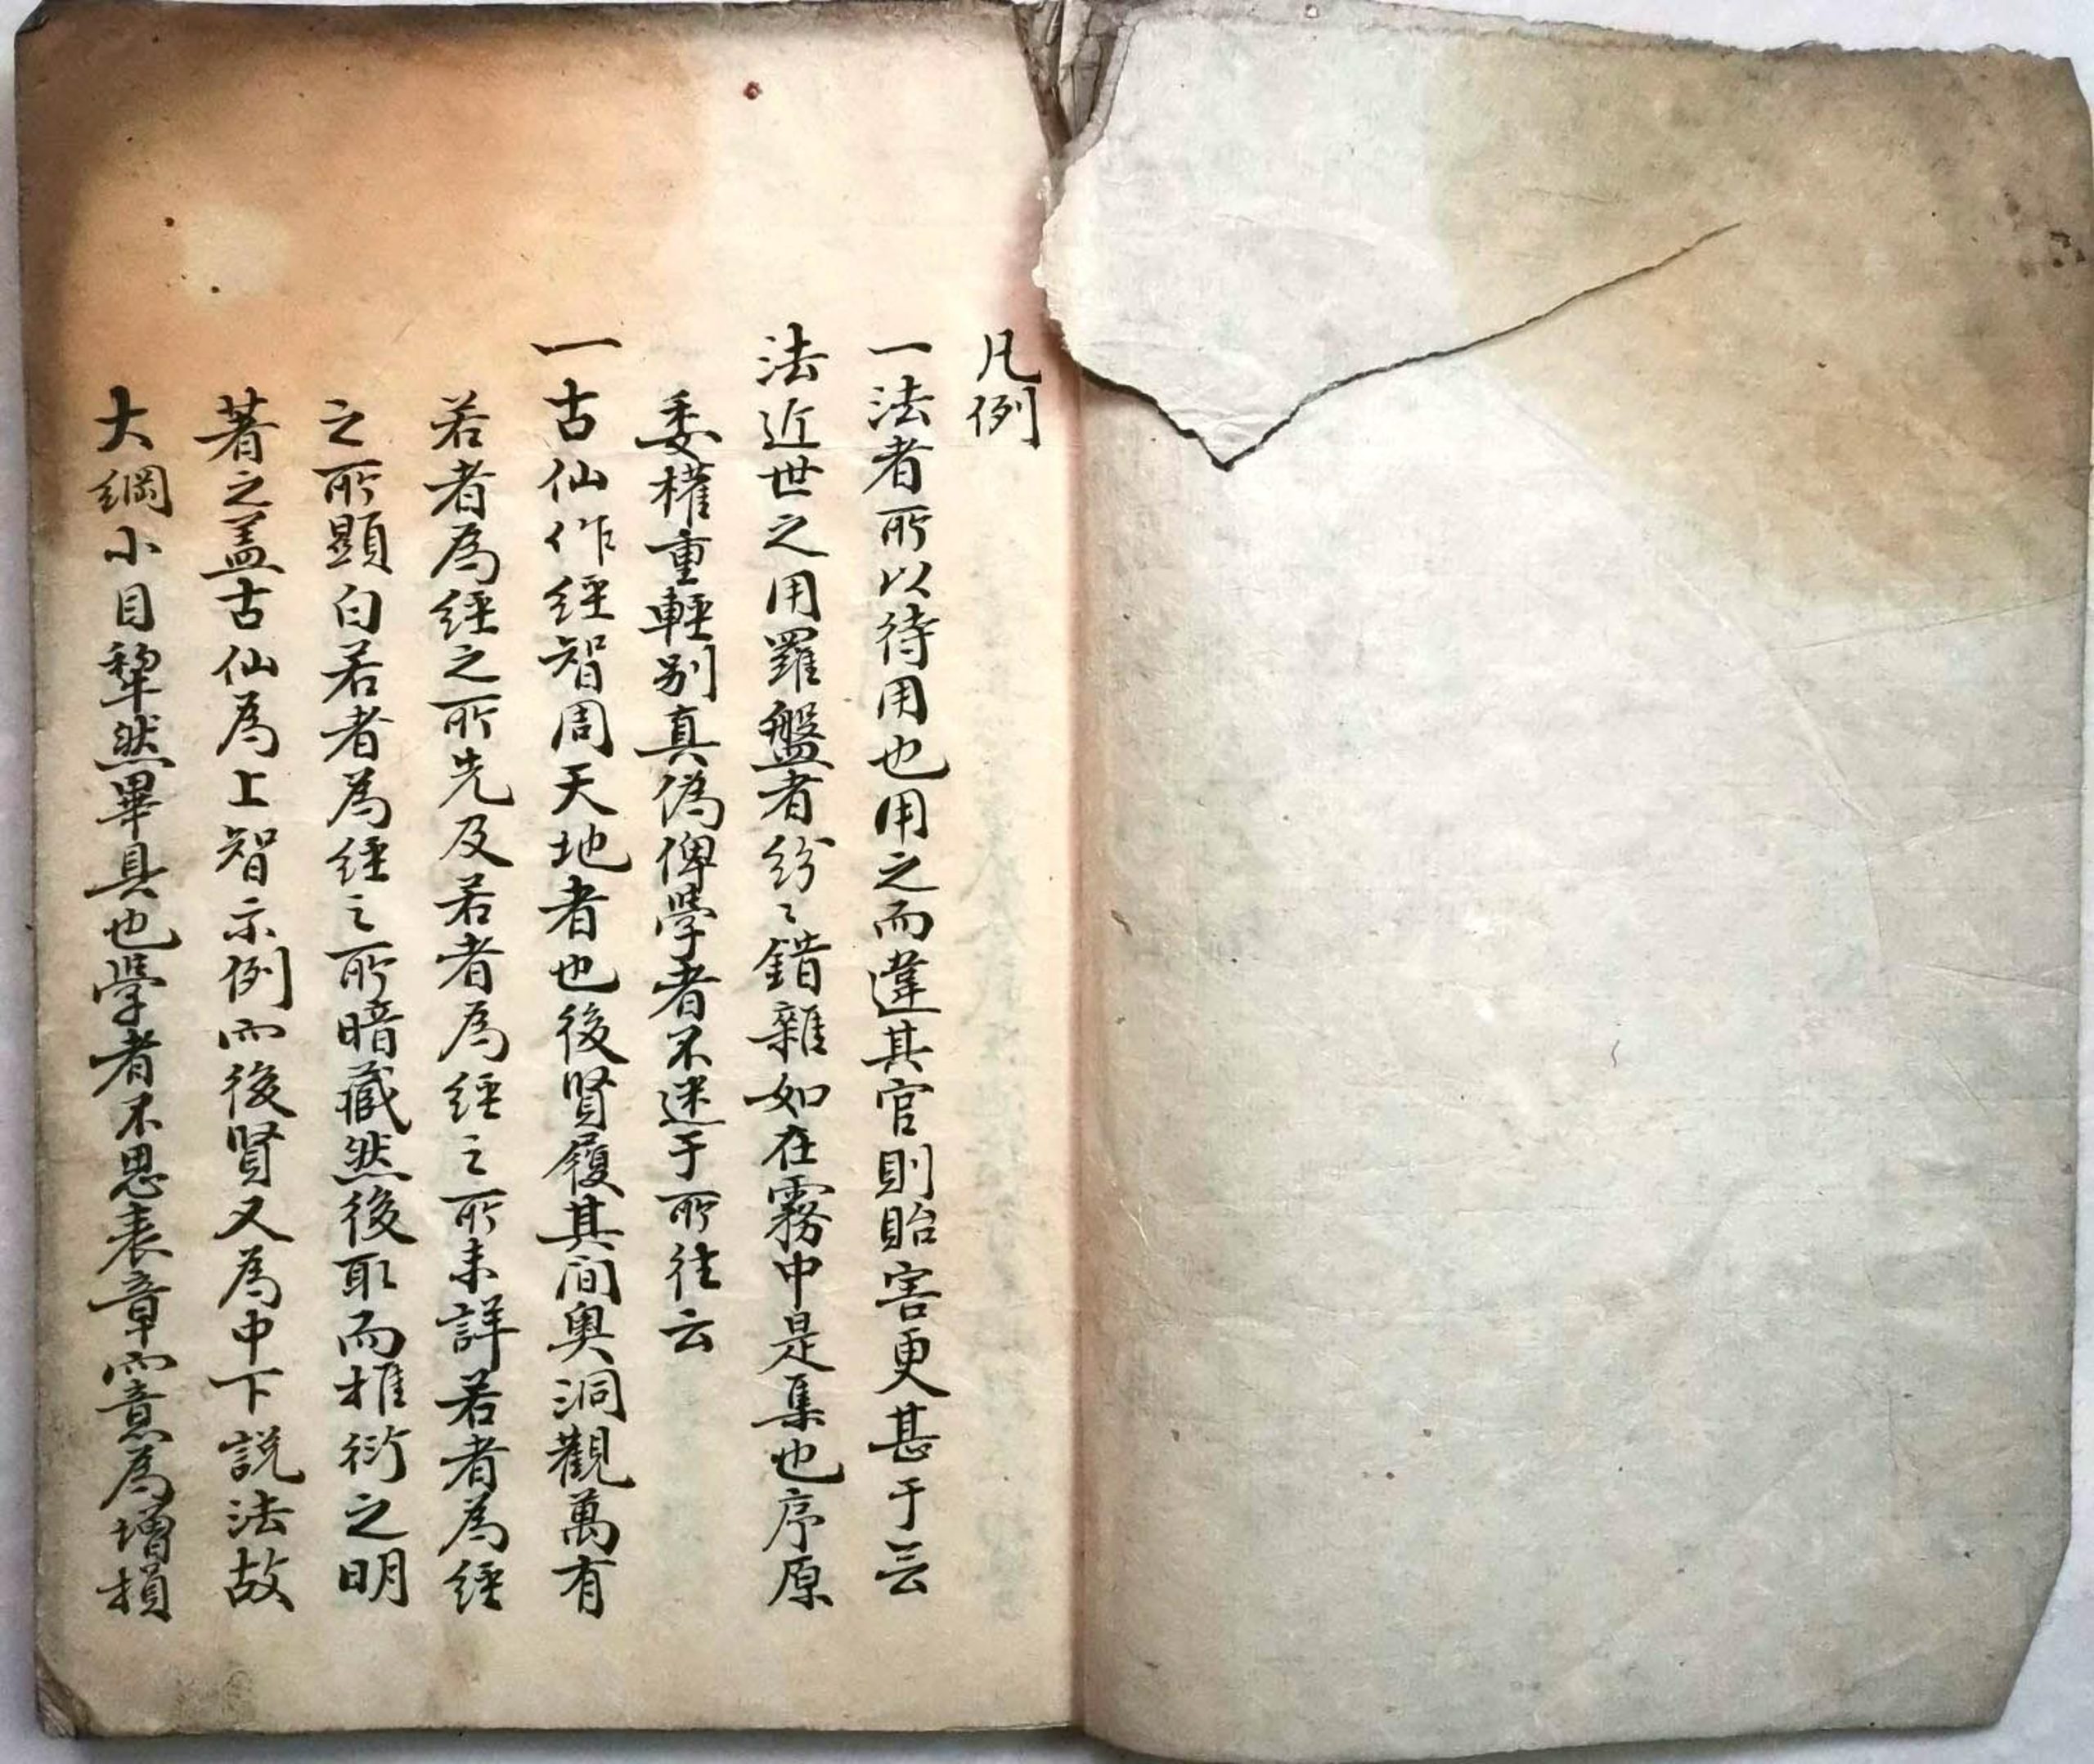 凡例
一法者所以待用也用之而違其官則貽害更甚于亖
法近世之用羅盤者紛〻錯雜如在霧中是集也序原
委權重輕别真偽俾學者不迷于所往云
一古仙作經智周天地者也後賢履其间奥洞觀萬有
若者為經之所先及若者為經之所未詳若者為經
之所顯白若者為經之所暗藏然後取而推衍之明
著之盖古仙為上智示例而後賢又為中下説法故
大綱小目犂然畢具也學者不思表章而意為增損